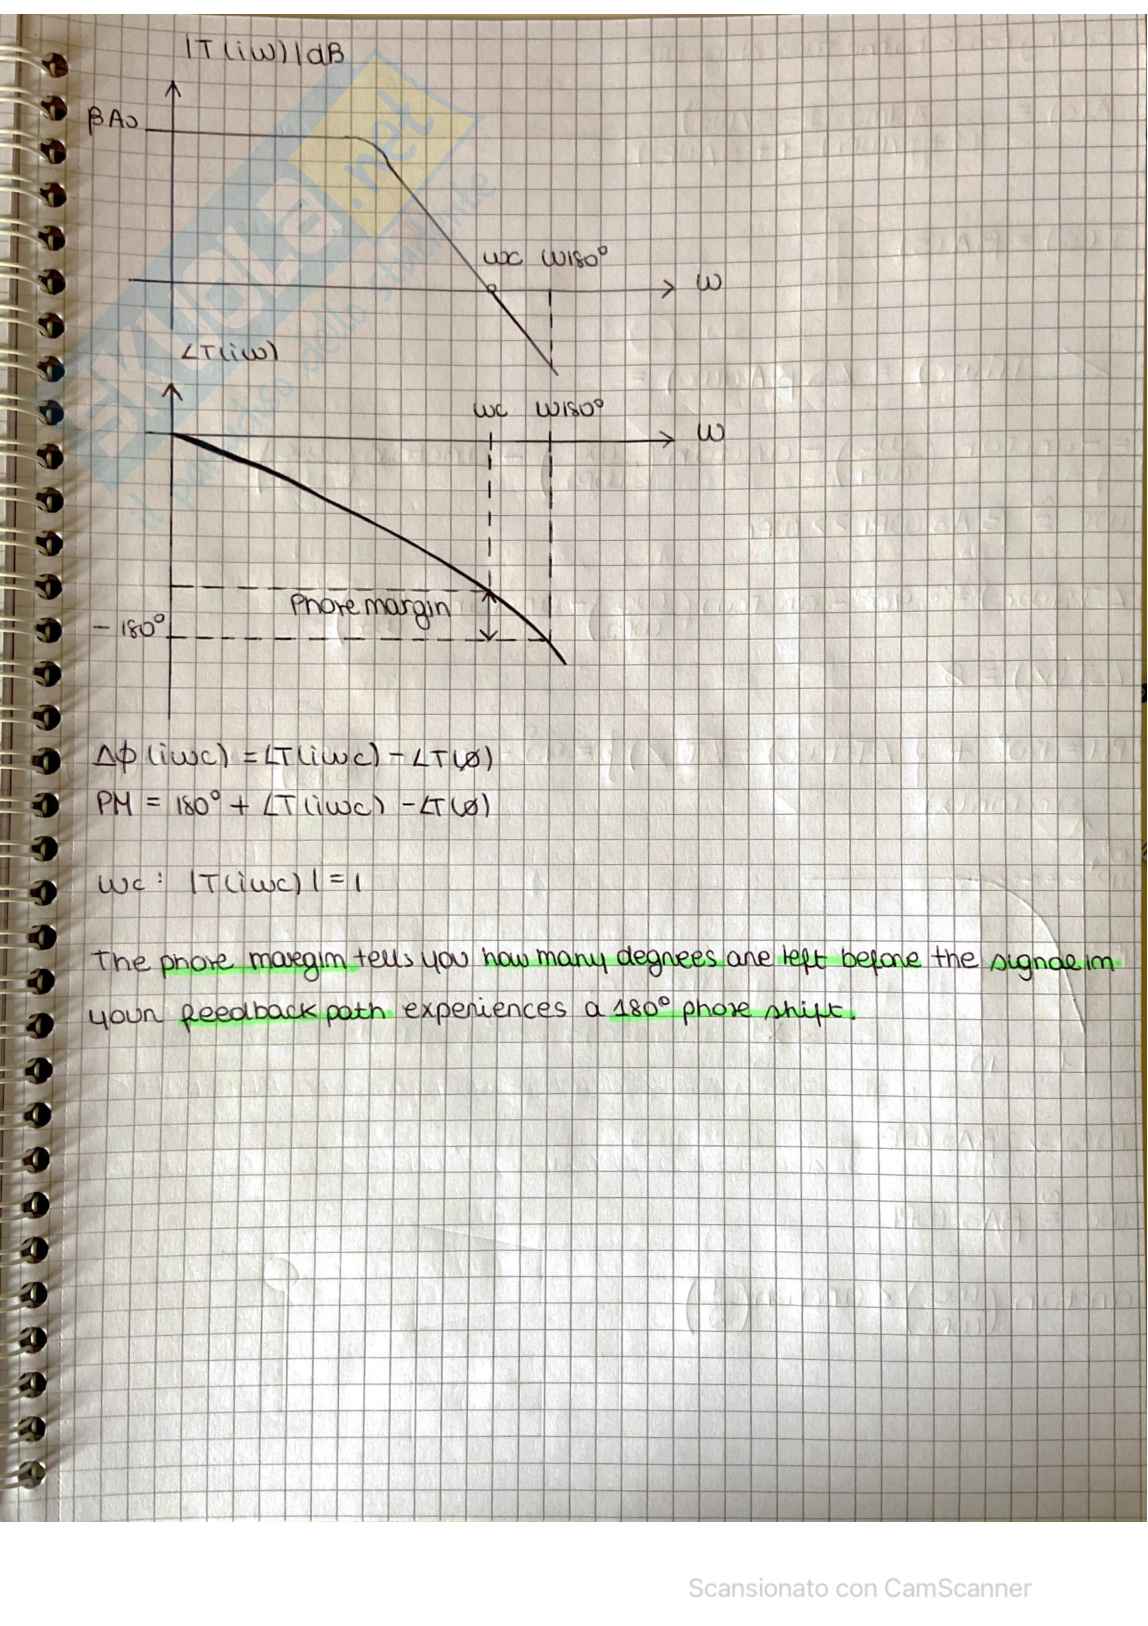 |T(iω)|dB
βAo
ωc ω180°
ω
∠T(iω)
ωc ω180°
ω
Phase margin
-180°
Δϕ(iωc) = ∠T(iωc) - ∠T(0)
PM = 180° + ∠T(iωc) - ∠T(0)
ωc: |T(iωc)| = 1
The phase margin tells you how many degrees are left before the signal in
your feedback path experiences a 180° phase shift.
SKUOLA.net
Scansionato con CamScanner